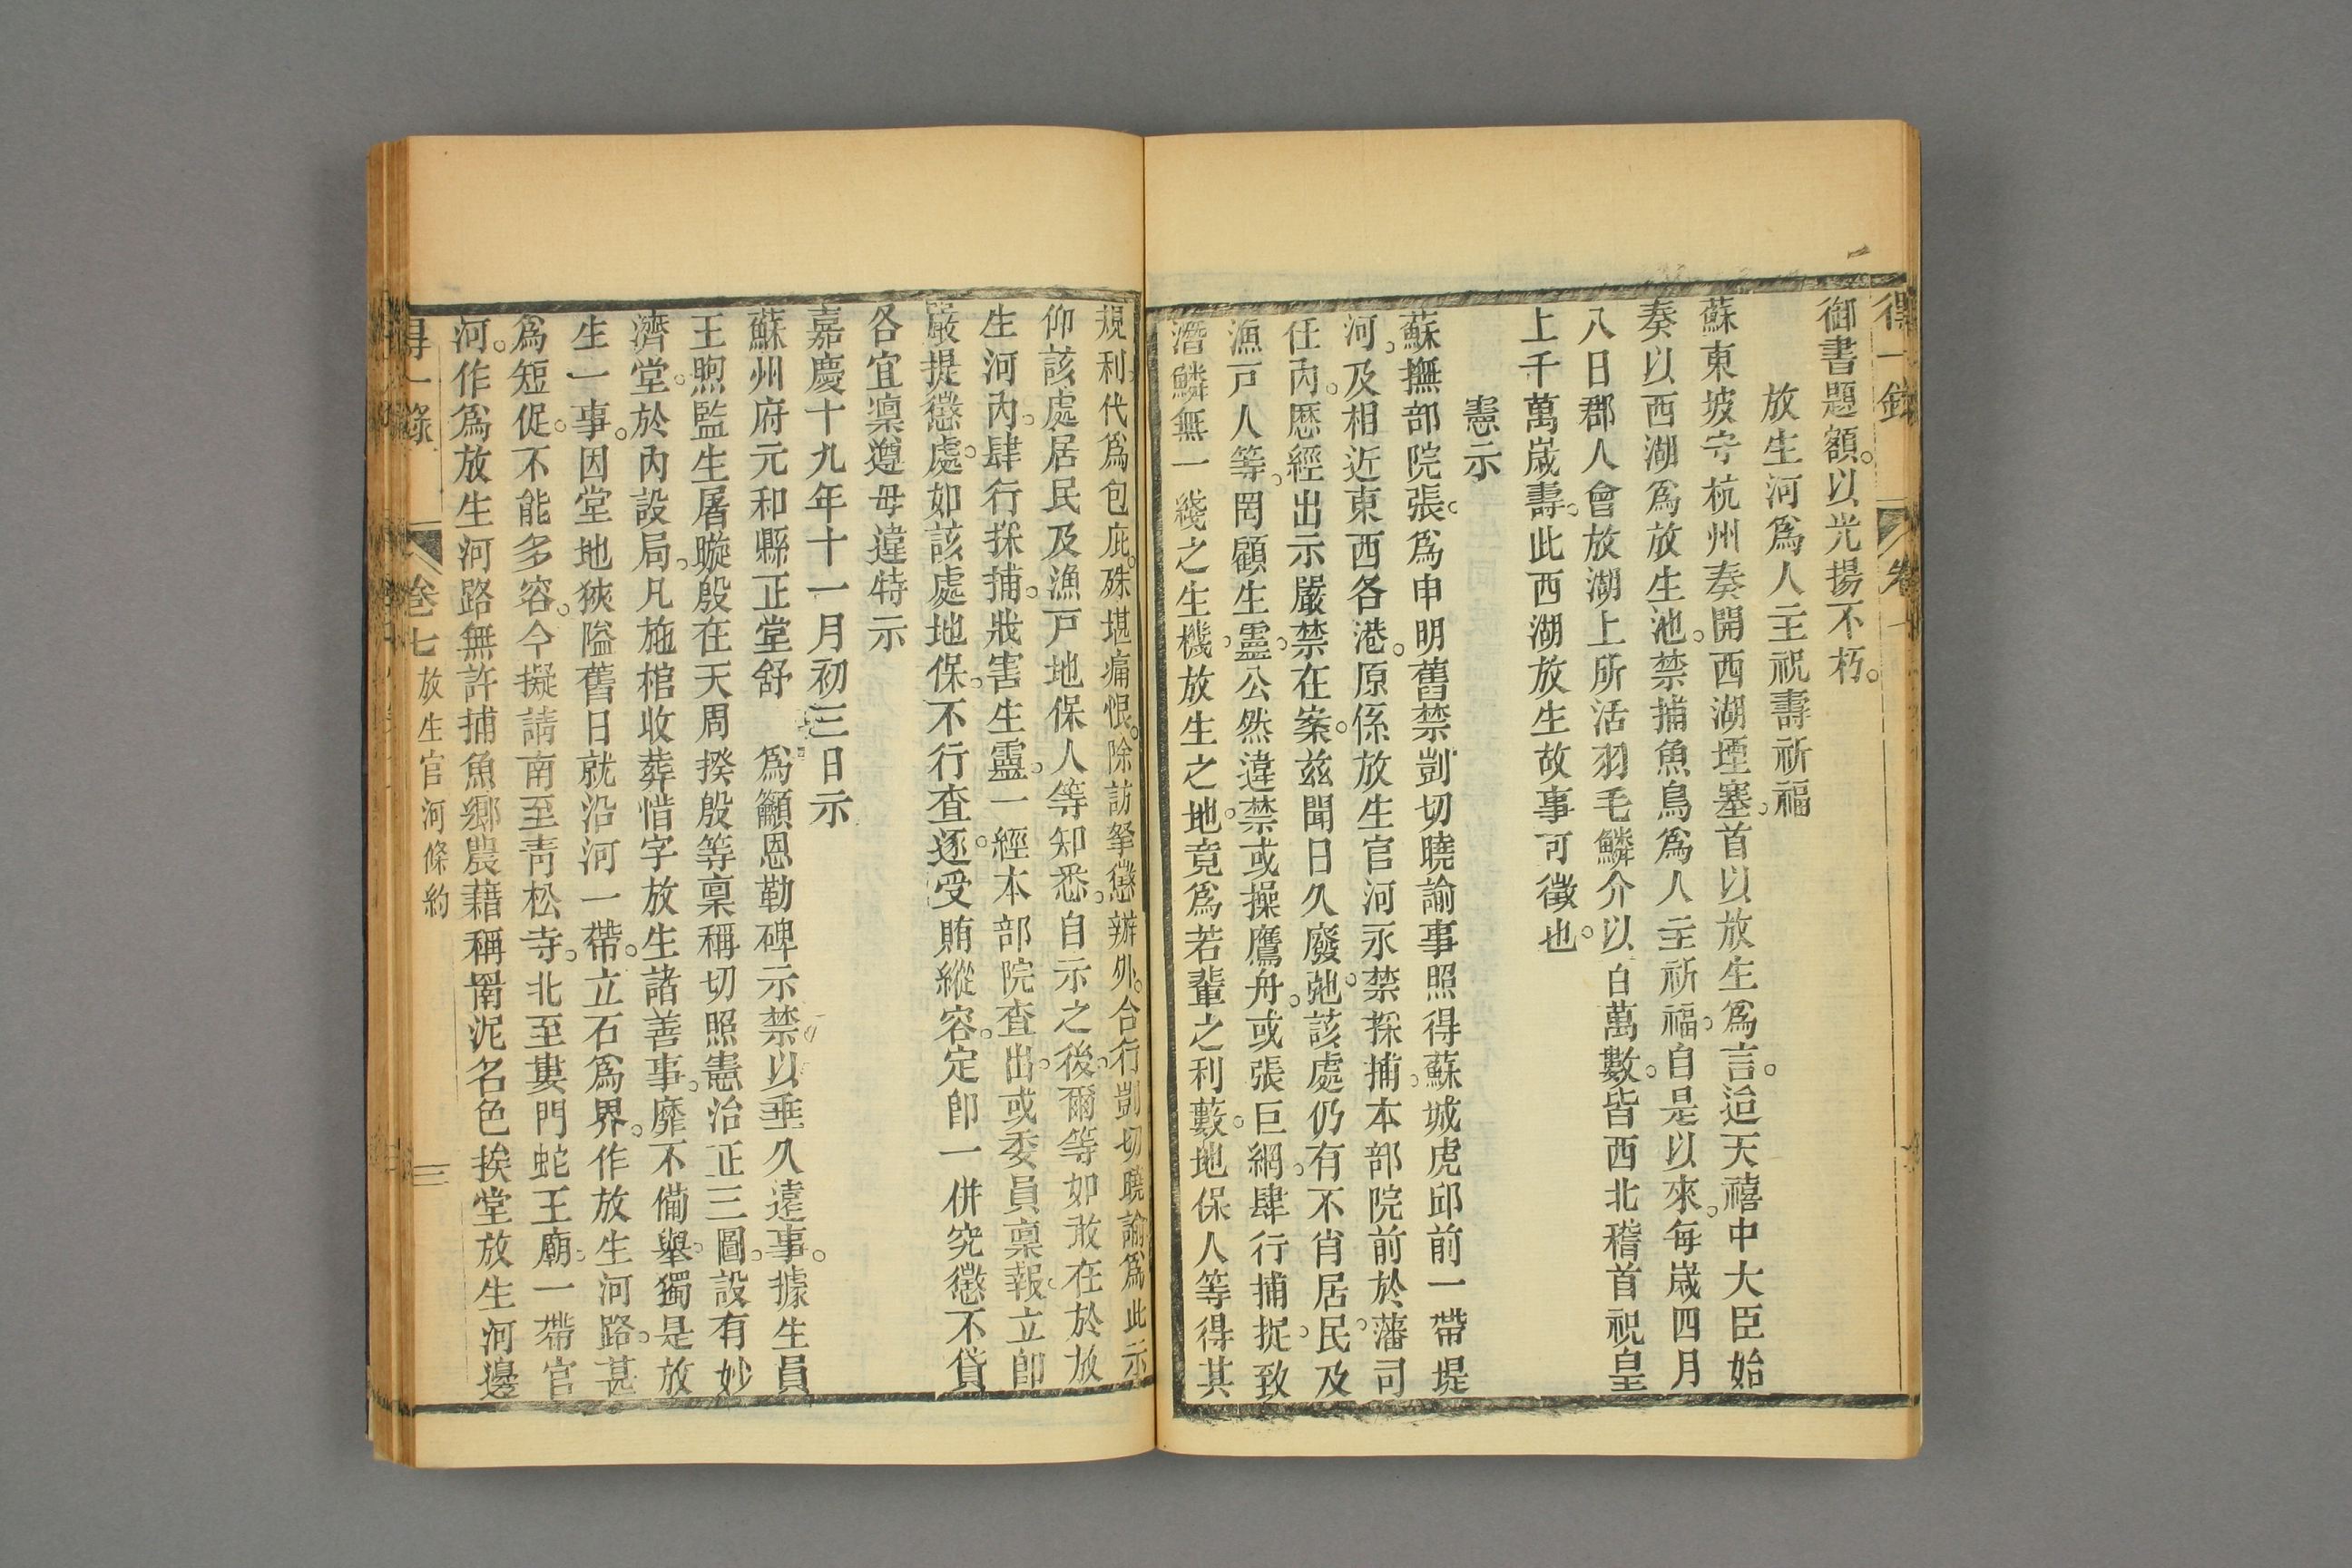 御書題額。以光揚不朽。
放生河爲人主祝壽祈福
蘇東坡守杭州奏開西湖堙塞。首以放生爲言。迨天禧中大臣始
奏以西湖爲放生池。禁捕魚鳥爲人主祈福。自是以來。每歲四月
八日郡人會放湖上所活羽毛鱗介以百萬數。皆西北稽首祝皇
上千萬歲壽。此西湖放生故事可徵也。
憲示
蘇撫部院張。爲申明舊禁剴切曉諭事照得蘇城虎邱前一帶堤
河。及相近東西各港。原係放生官河永禁採捕。本部院前於藩司
任內。歷經出示嚴禁在案。茲聞日久廢弛。該處仍有不肖居民。及
漁戸人等。罔顧生靈。公然違禁或操鷹舟。或張巨網。肆行捕捉。致
潛鱗無一綫之生機。放生之地。竟爲若輩之利藪。地保人等得其
規利。代爲包庇。殊堪痛恨。除訪拏懲辦外。合行剴切曉諭爲此示
仰該處居民及漁戸地保人等知悉。自示之後。爾等如敢在於放
生河內。肆行採捕。戕害生靈。一經本部院查出。或委員稟報。立卽
嚴提懲處。如該處地保。不行查逐。受賄縱容。定卽一併究懲不貸
各宜凛遵毋違特示
嘉慶十九年十一月初三日示
蘇州府元和縣正堂舒　爲籲恩勒碑示禁。以垂久遠事。據生員
王煦監生屠曔殷在天周揆殷等稟稱切照憲治正三圖。設有妙
濟堂。於內設局。凡施棺收葬惜字放生諸善事。靡不備舉。獨是放
生一事。因堂地狹隘舊日就沿河一帶。立石爲界。作放生河路。甚
爲短促。不能多容。今擬請南至靑松寺。北至婁門蛇王廟。一帶官
河。作爲放生河路無許捕魚鄕農藉稱罱泥名色挨堂放生河邊
得一錄　卷七　放生官河條約　三